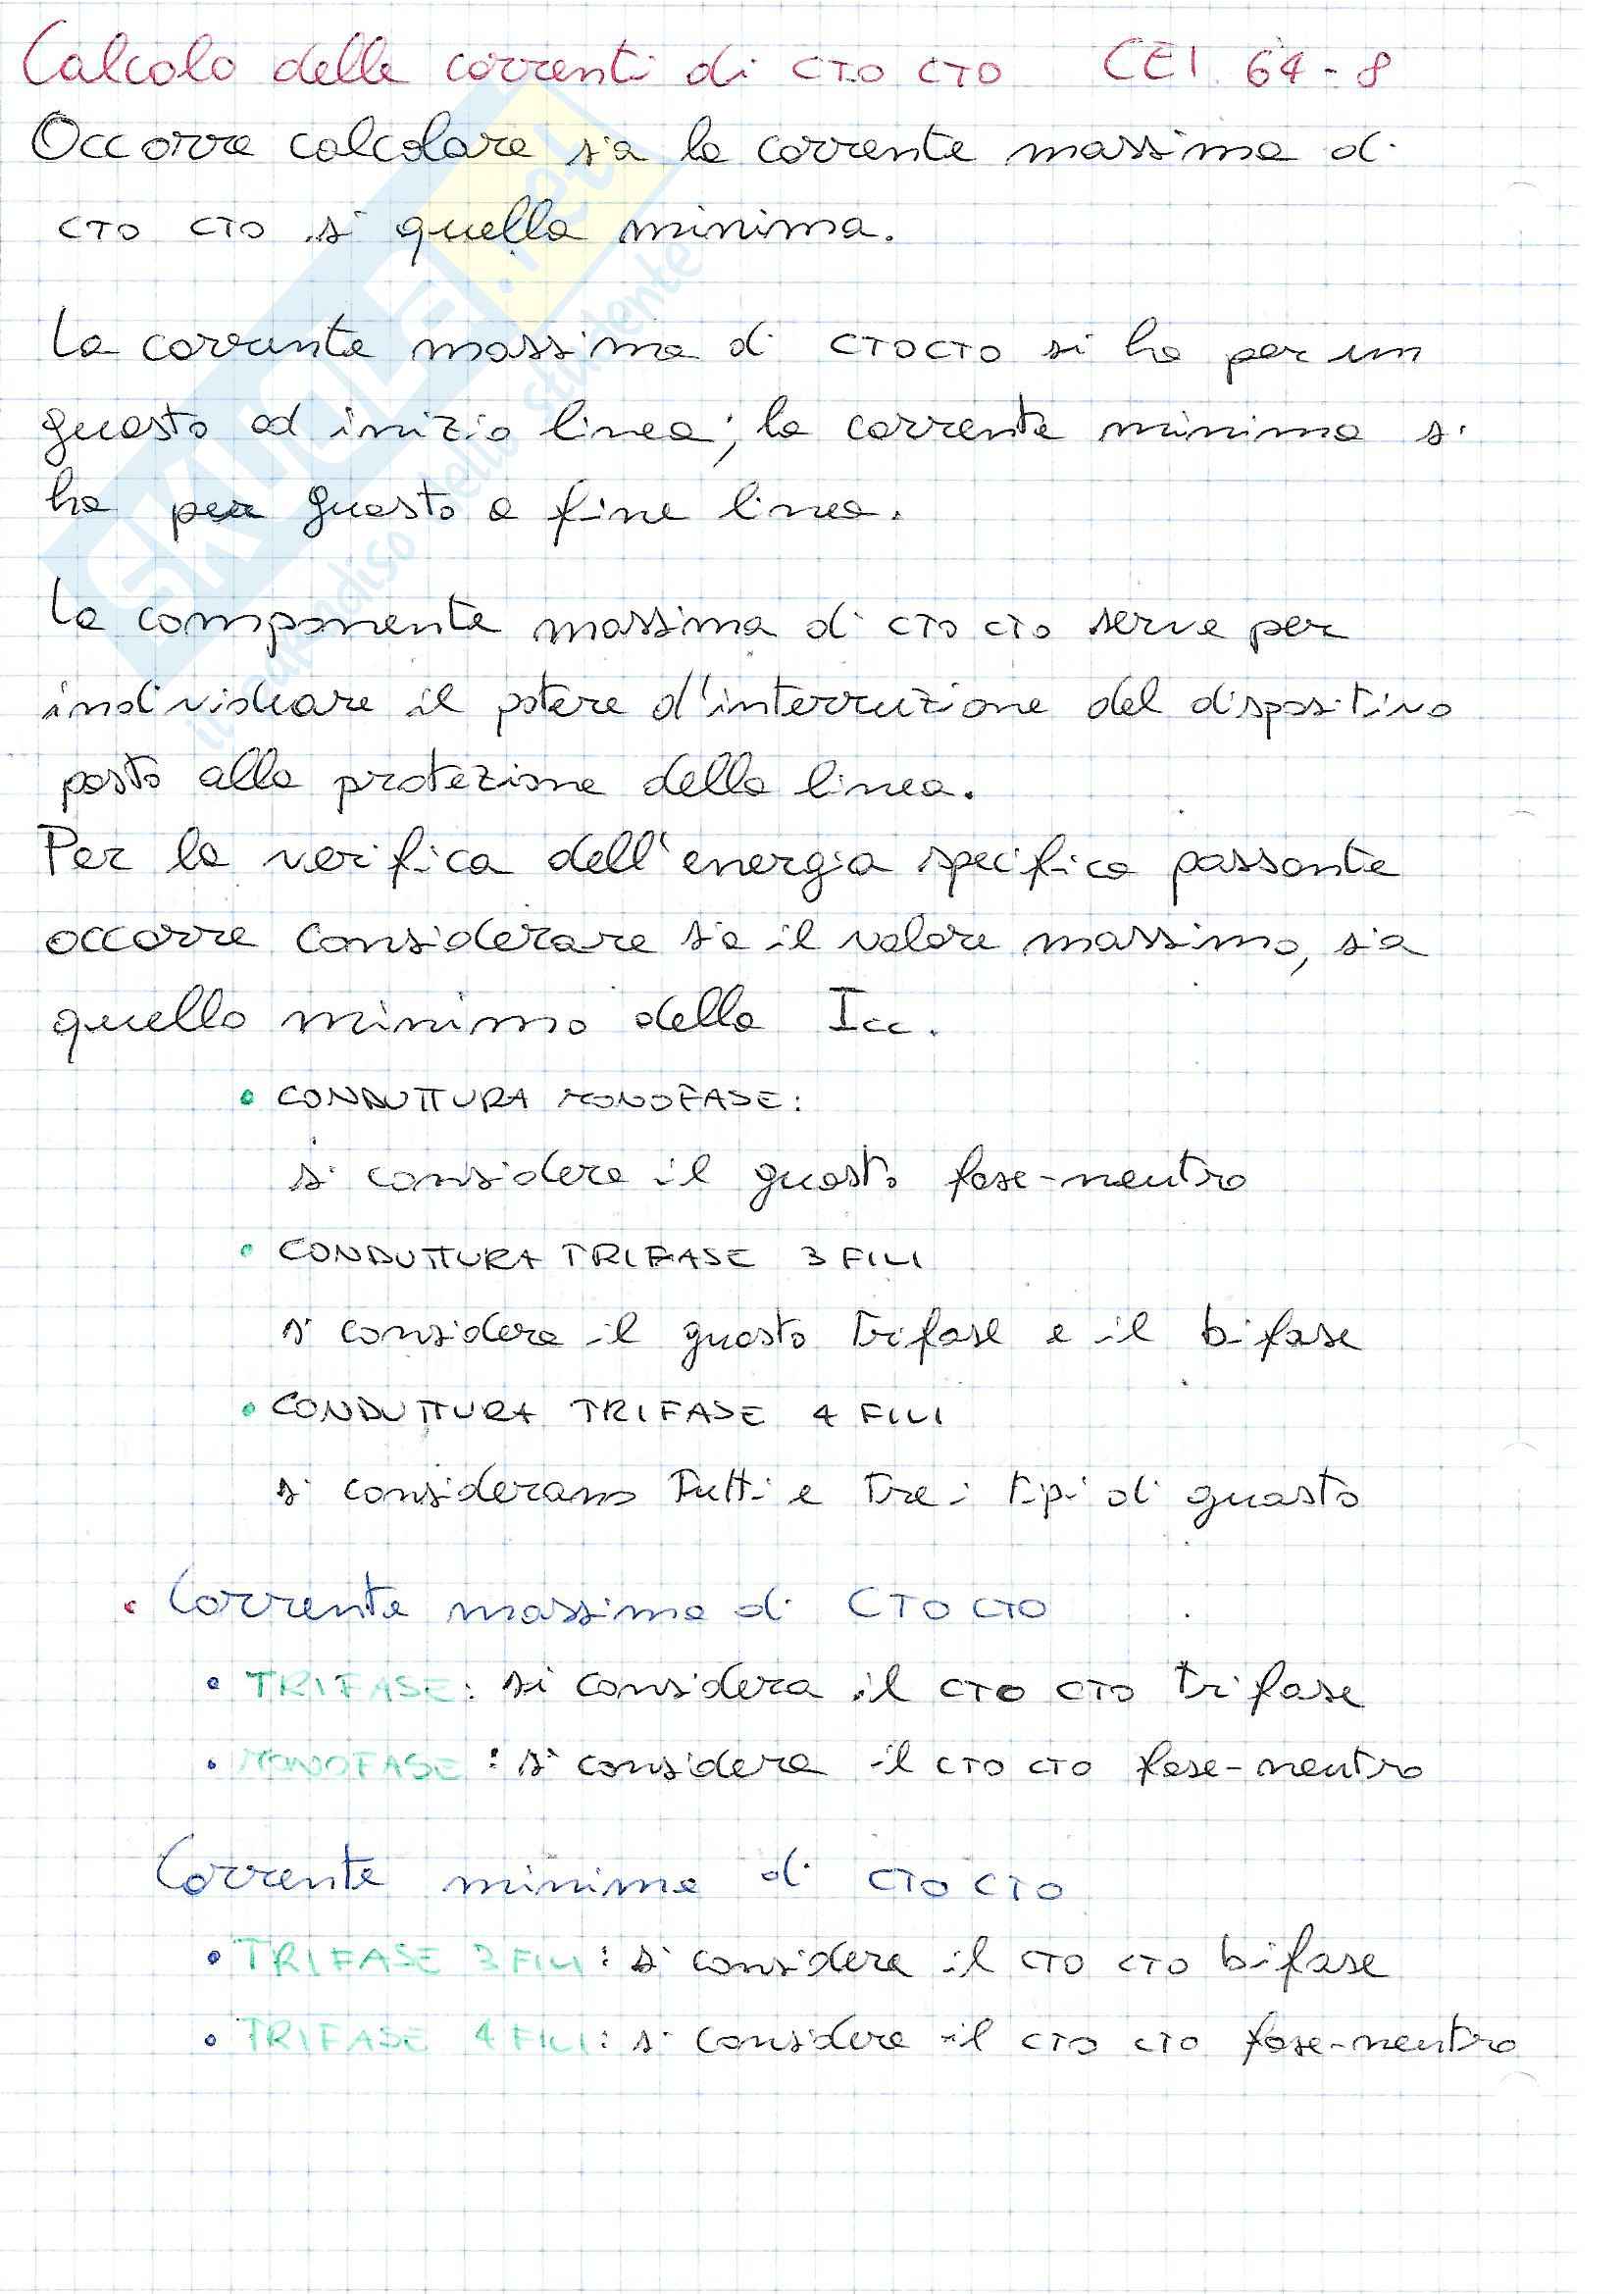 Calcolo delle correnti di CTO CTO CEI 64-8
Occorre calcolare sia la corrente massima di
CTO CTO si quella minima.
La corrente massima di CTOCTO si ha per un
guasto ad inizio linea; la corrente minima si
ha per guasto a fine linea.
La componente massima di CTO CTO serve per
individuare il potere d'interruzione del dispositivo
posto alla protezione della linea.
Per la verifica dell'energia specifica passante
occorre considerare sia il valore massimo, sia
quello minimo della Icc.
• CONDUTTURA MONOFASE:
si considera il guasto fase-neutro
• CONDUTTURA TRIFASE 3 FILI
si considera il guasto trifase e il bifase
• CONDUTTURA TRIFASE 4 FILI
si considerano tutti e tre i tipi di guasto
• Corrente massima di CTO CTO
• TRIFASE: si considera il CTO CTO trifase
• MONOFASE: si considera il CTO CTO fase-neutro
Corrente minima di CTO CTO
• TRIFASE 3 FILI: si considera il CTO CTO bifase
• TRIFASE 4 FILI: si considera il CTO CTO fase-neutro
SKUOLA.net
il paradiso dello studente